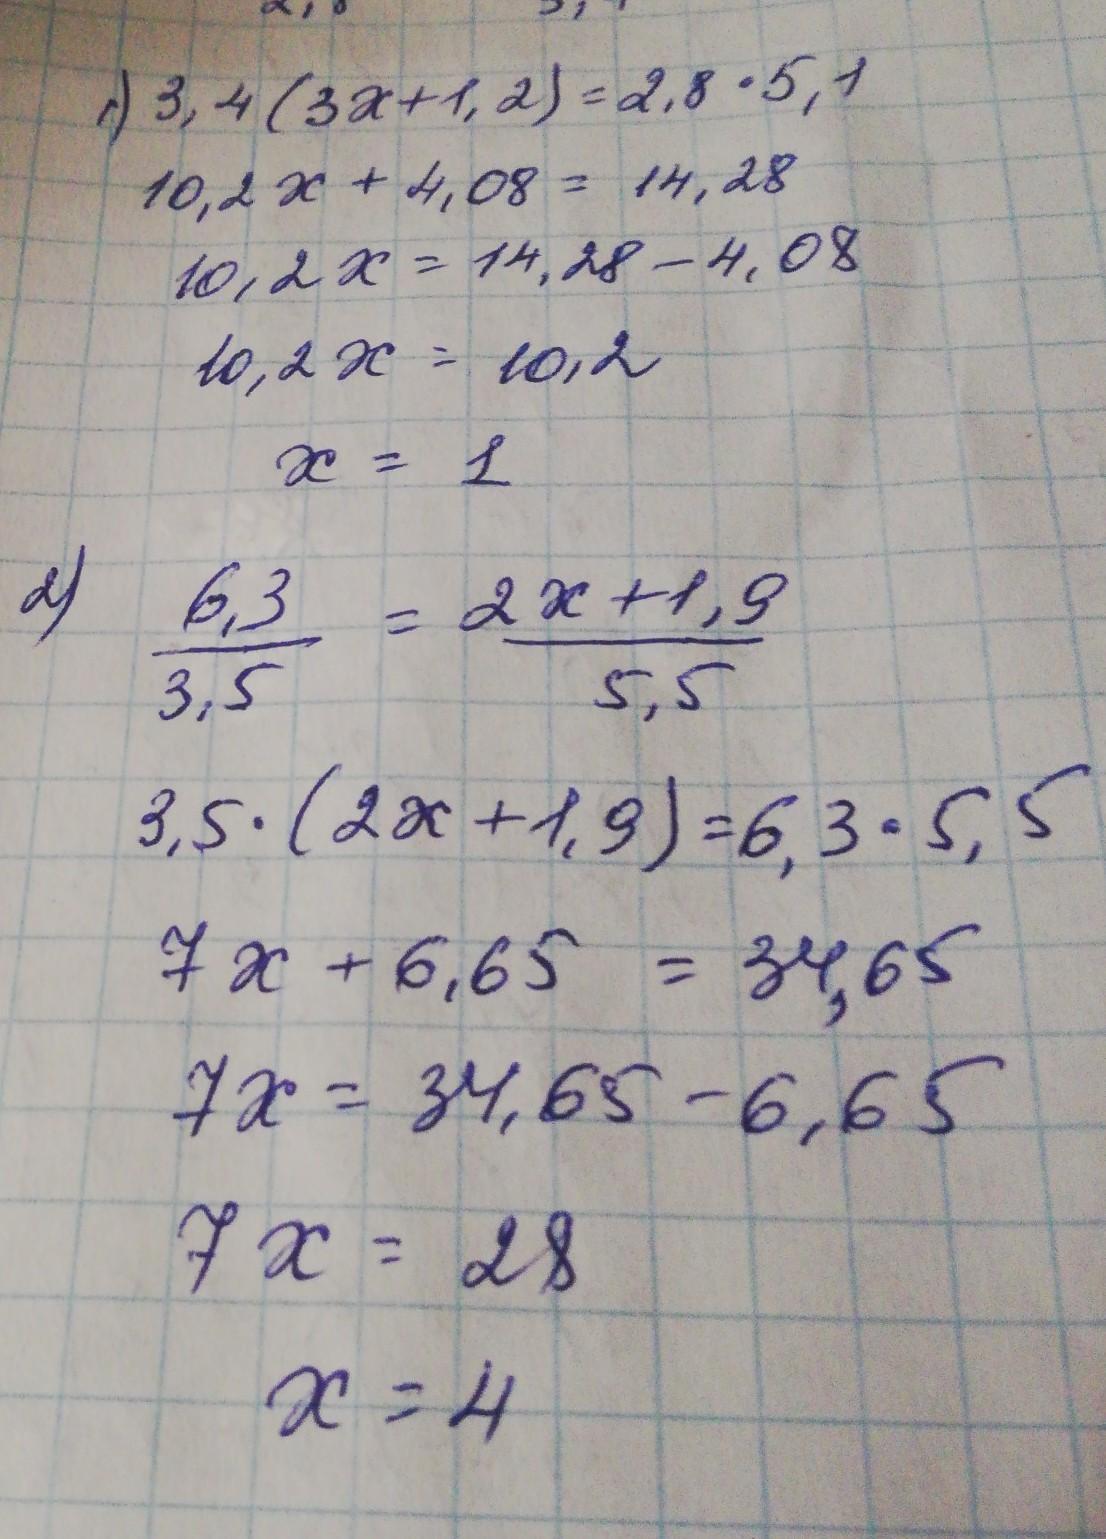 1) 3,4(3x+1,2)=2,8·5,1
10,2x + 4,08 = 14,28
10,2x = 14,28 - 4,08
10,2x = 10,2
x = 1
2) 6,3/3,5 = 2x+1,9/5,5
3,5·(2x+1,9)=6,3·5,5
7x + 6,65 = 34,65
7x = 34,65 - 6,65
7x = 28
x = 4